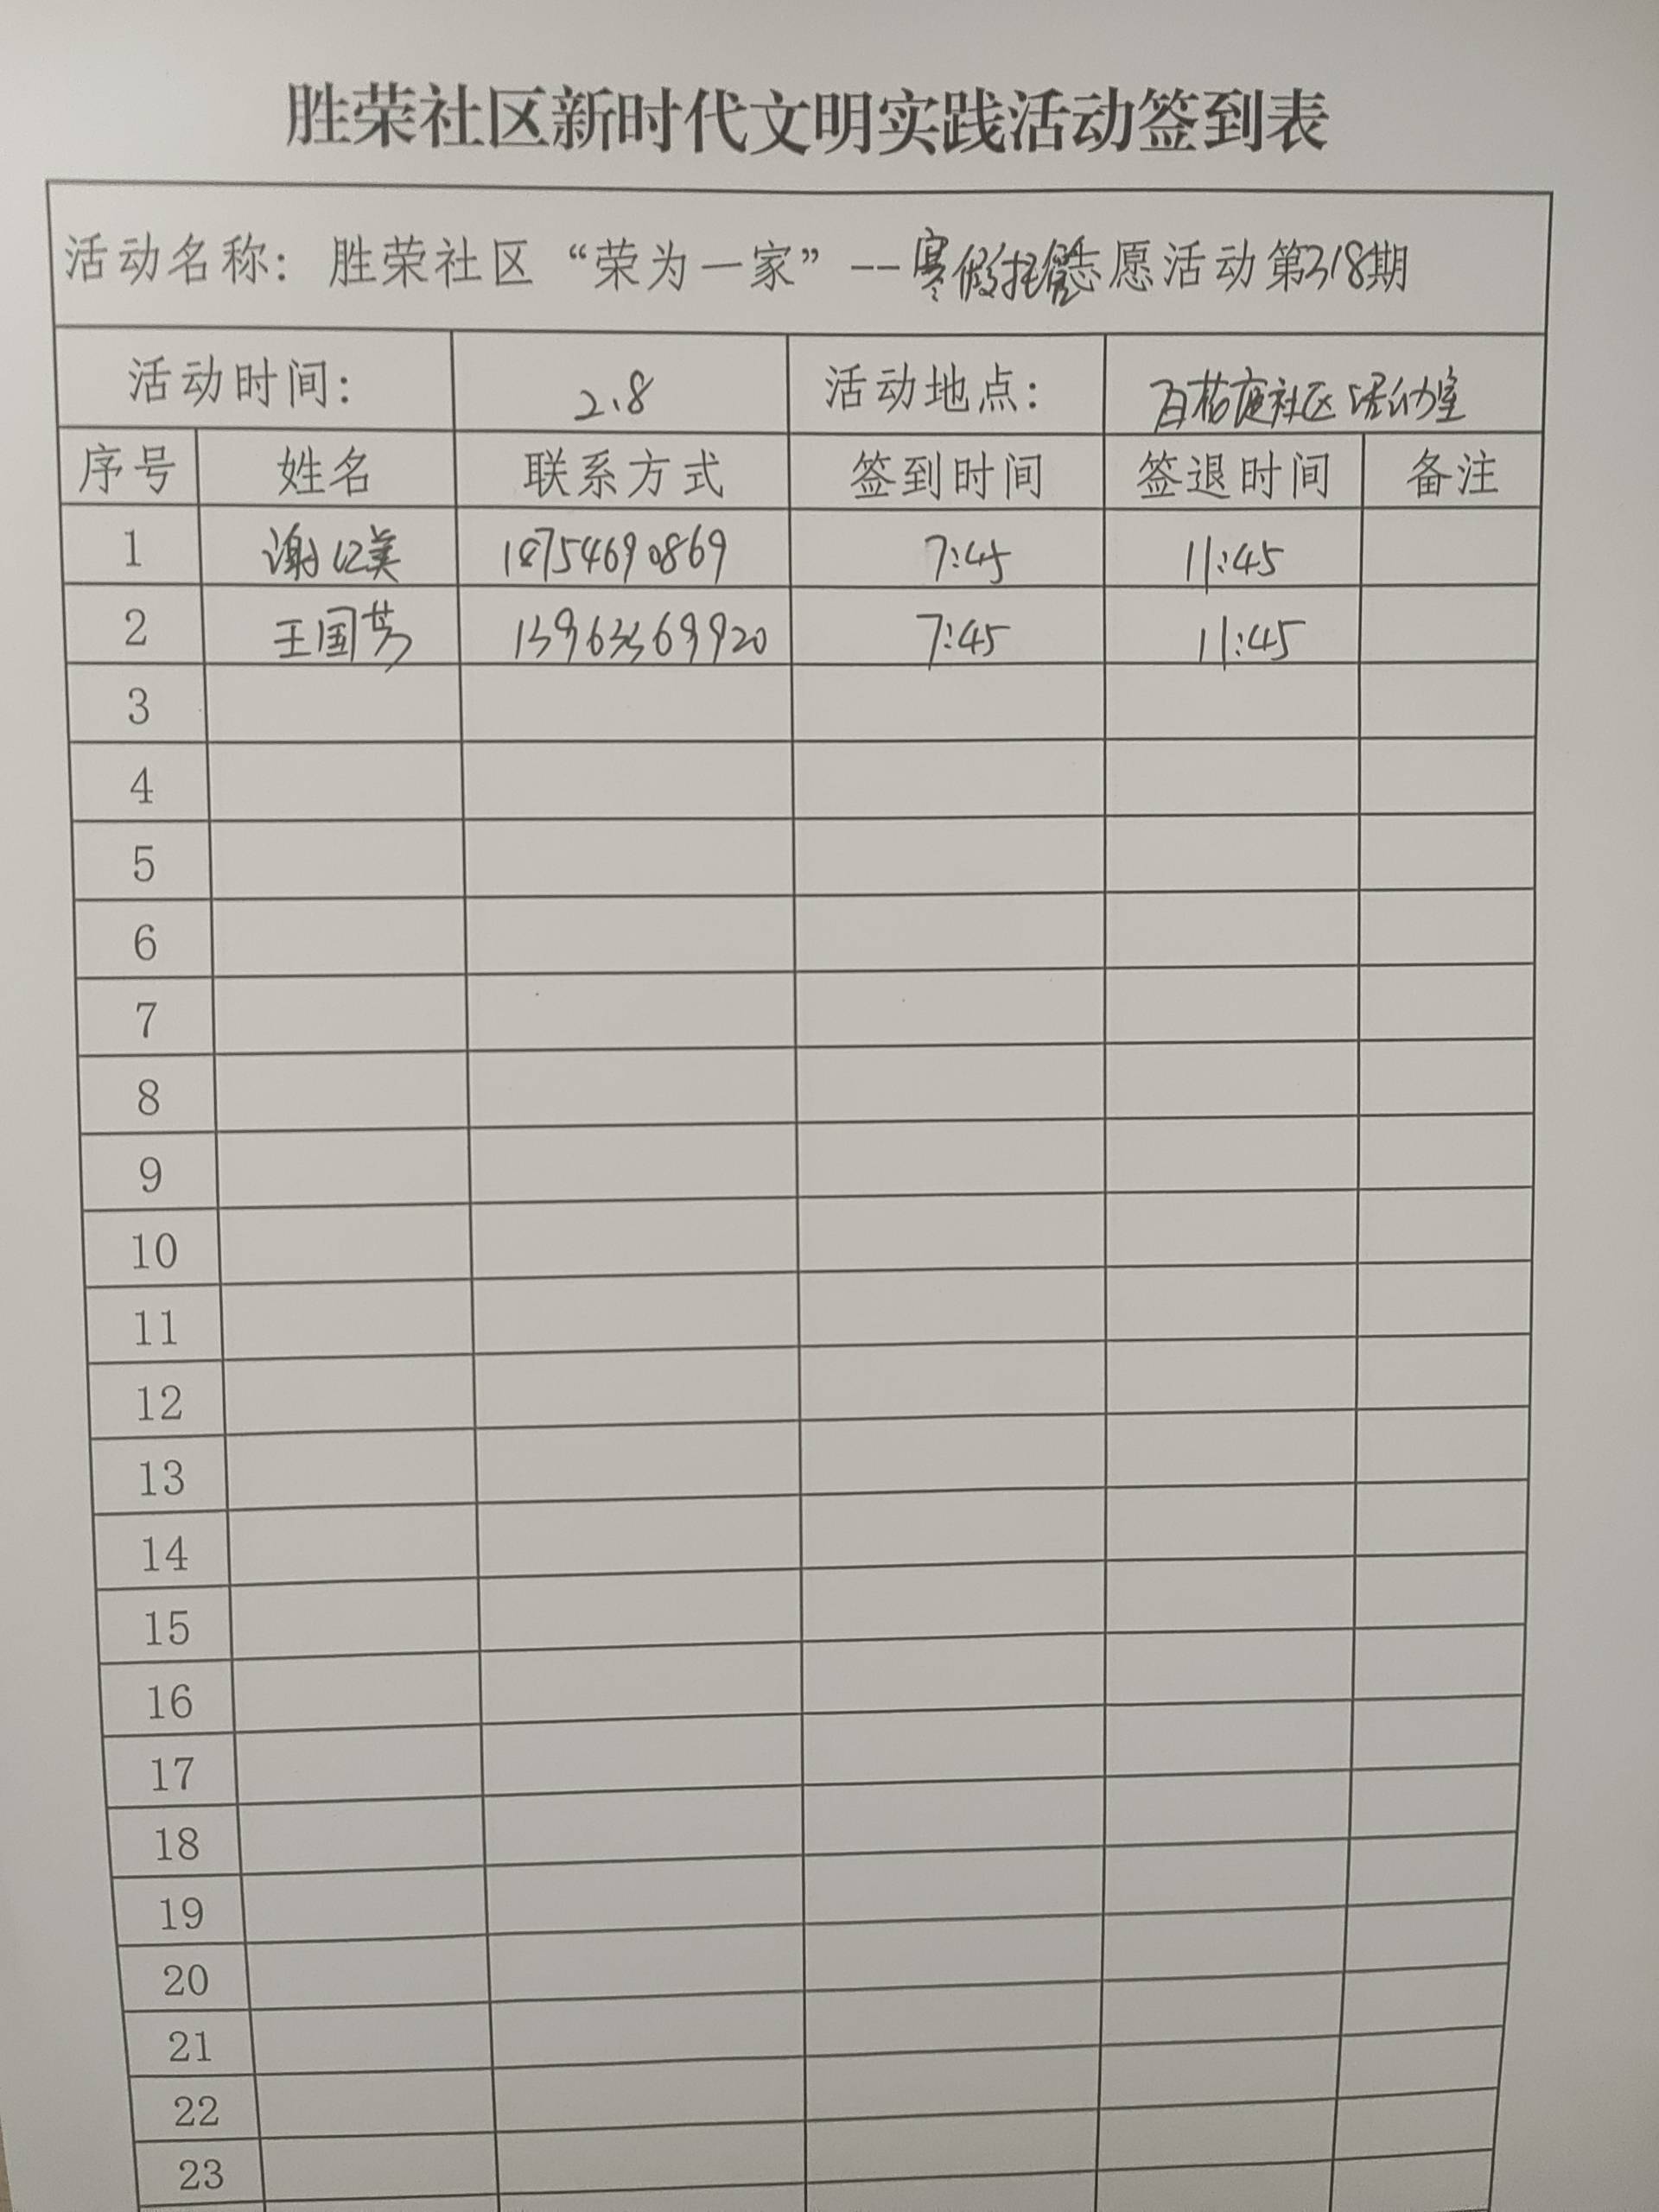 胜荣社区新时代文明实践活动签到表
活动名称：胜荣社区“荣为一家”--寒假托管志愿活动第318期
活动时间： 2.8 活动地点： 百花庭社区活动室
序号 姓名 联系方式 签到时间 签退时间 备注
1 谢 美 18754690869 7:45 11:45
2 王国芳 13963369920 7:45 11:45
3
4
5
6
7
8
9
10
11
12
13
14
15
16
17
18
19
20
21
22
23